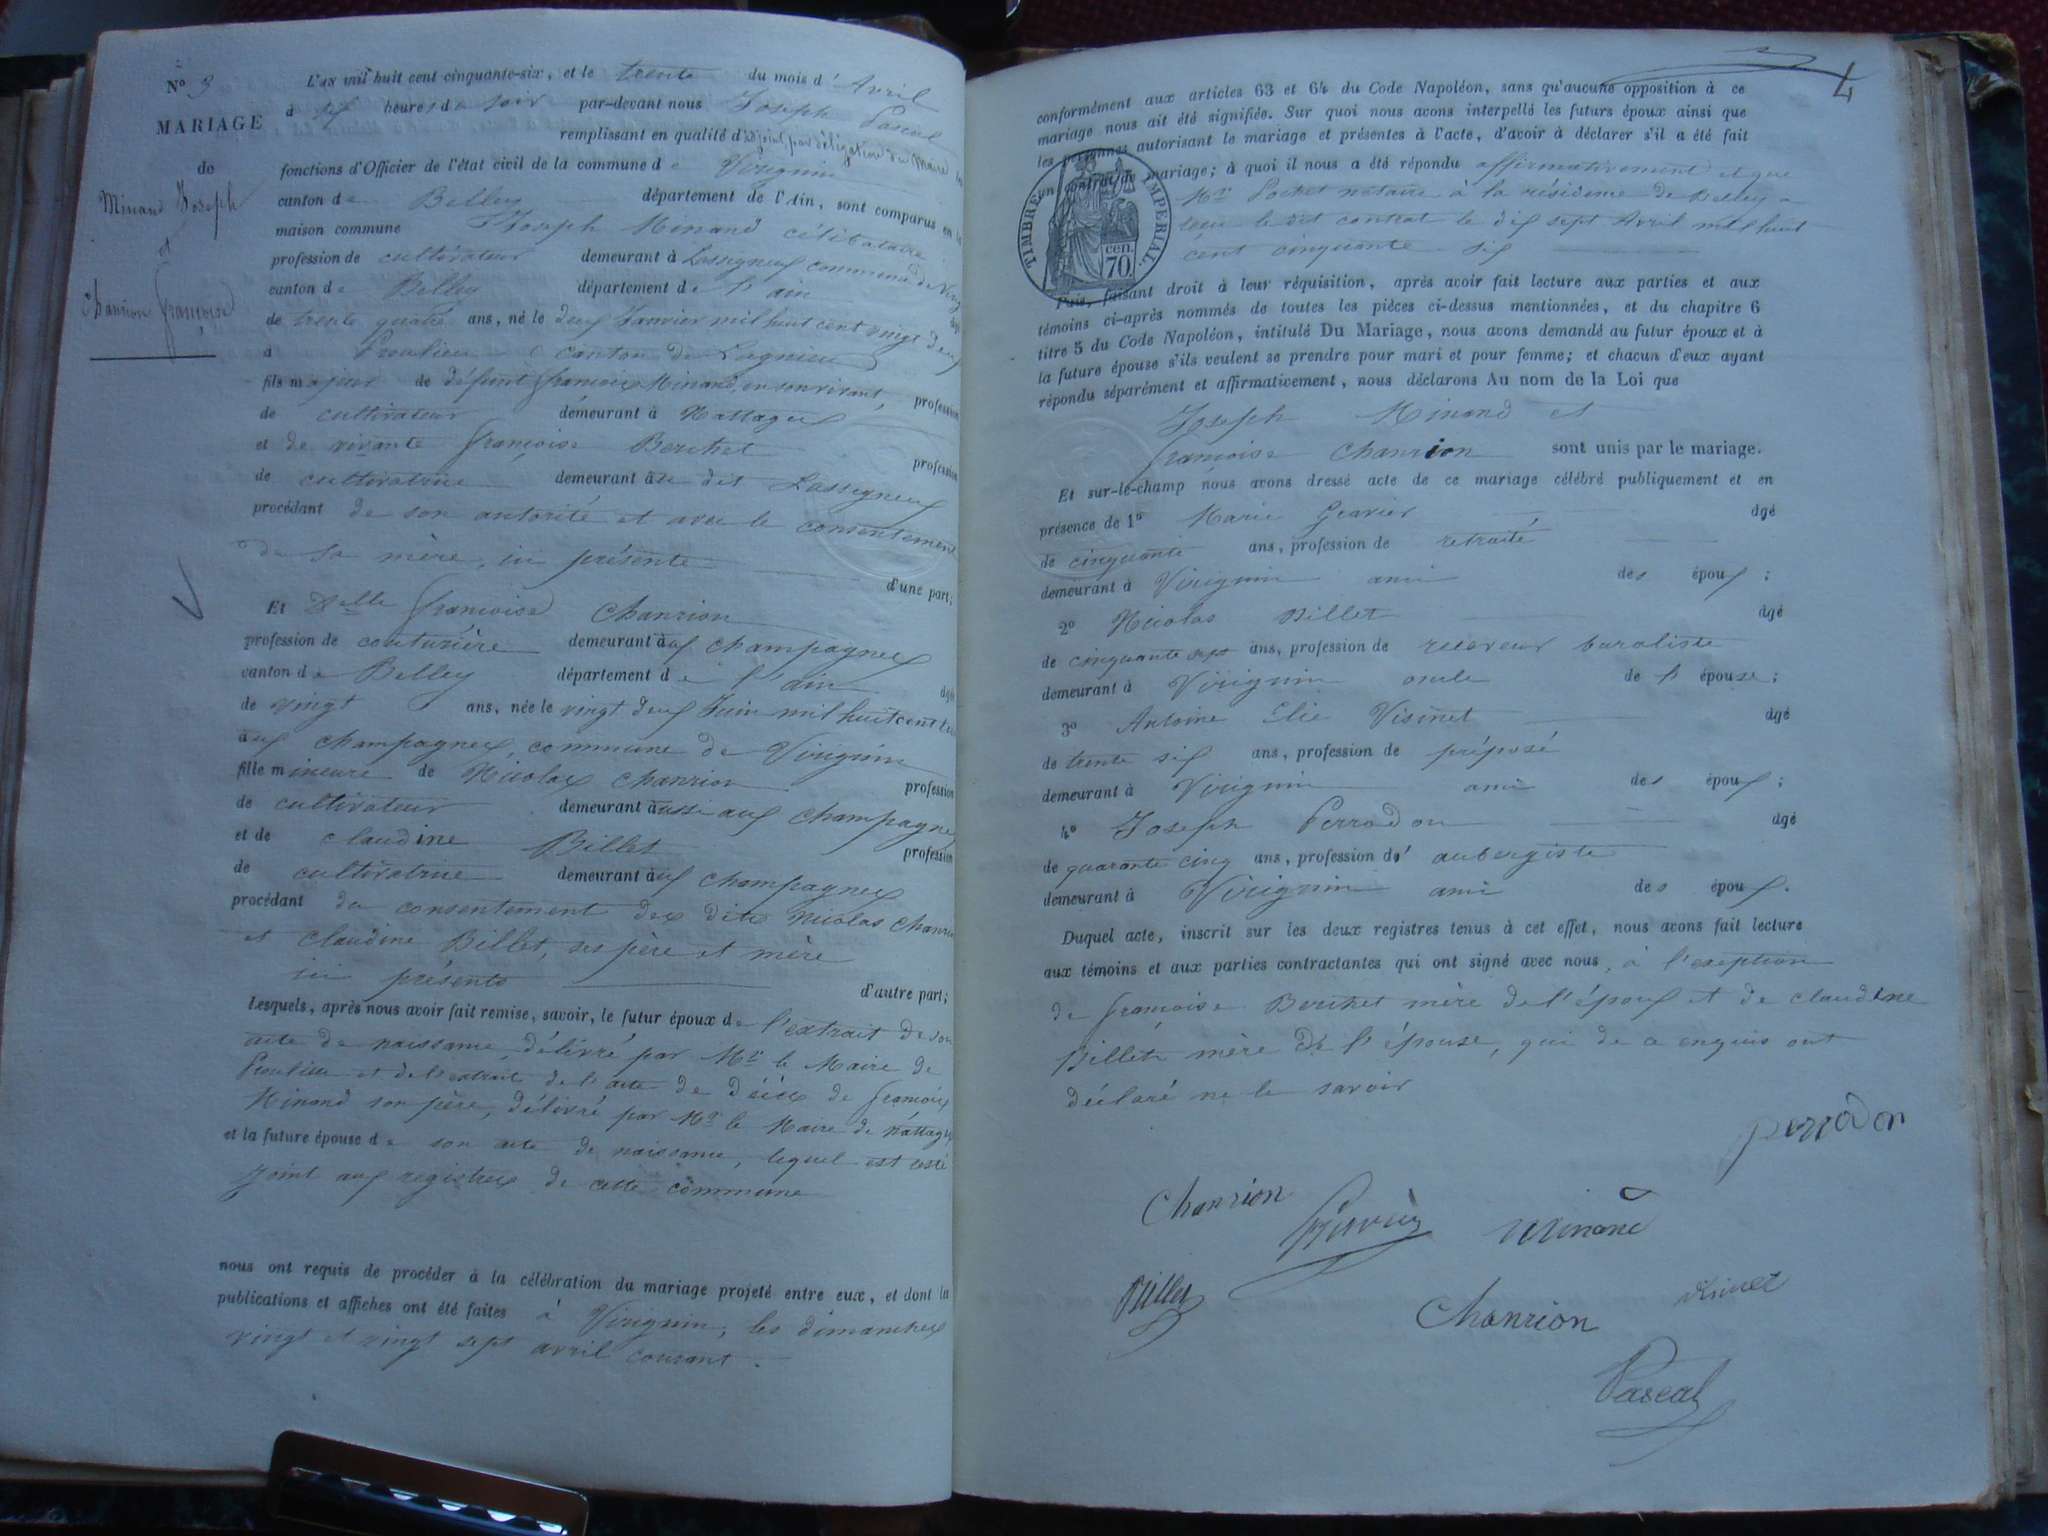 N° 3
MARIAGE
de
Minand Joseph
et
Chanrion françoise
L'an mil huit cent cinquante-six, et le trente du mois d'Avril
à six heures du soir par-devant nous Joseph Pascal
remplissant en qualité d'adjoint, par délégation du Maire les
fonctions d'Officier de l'état civil de la commune de Virignin
canton de Belley département de l'Ain, sont comparus en la
maison commune Joseph Minand célibataire
profession de cultivateur demeurant à Lassigneux commune de
canton de Belley département de l'ain
de trente quatre ans, né le deux Janvier mil huit cent vingt deux
à Proulieu (canton de Lagnieu)
fils majeur de défunt françois Minand en son vivant, profession
de cultivateur demeurant à Nattages
et de vivante françoise Berthet profession
de cultivatrice demeurant au dit Lassigneux
procédant de son autorité et avec le consentement
de sa mère, ici présente d'une part;
Et Delle françoise Chanrion
profession de couturière demeurant aux champagnes
canton de Belley département de l'ain âgée
de vingt ans, née le vingt deux Juin mil huit cent
aux champagnes, commune de Virignin
fille mineure de Nicolas chanrion profession
de cultivateur demeurant aussi aux champagnes
et de claudine Billet profession
de cultivatrice demeurant aux champagnes
procédant du consentement des dits Nicolas Chanrion
et claudine Billet, ses père et mère
ici présents d'autre part;
Lesquels, après nous avoir fait remise, savoir, le futur époux de l'extrait de son
acte de naissance, délivré par Mr le Maire de
Proulieu et de l'extrait de l'acte de décès de françois
Minand son père, délivré par Mr le Maire de Nattages
et la future épouse de son acte de naissance, lequel est resté
joint aux registres de cette commune
nous ont requis de procéder à la célébration du mariage projeté entre eux, et dont la
publications et affiches ont été faites à Virignin, les dimanches
vingt et vingt sept avril courant.
4
conformément aux articles 63 et 64 du Code Napoléon, sans qu'aucune opposition à ce
mariage nous ait été signifiée. Sur quoi nous avons interpellé les futurs époux ainsi que
les personnes autorisant le mariage et présentes à l'acte, d'avoir à déclarer s'il a été fait
un contrat de mariage; à quoi il nous a été répondu affirmativement et que
Mr Pochet notaire à la résidence de Belley a
reçu le dit contrat le dix sept Avril mil huit
cent cinquante six
TIMBRE IMPERIAL
70 cen.
Puis, faisant droit à leur réquisition, après avoir fait lecture aux parties et aux
témoins ci-après nommés de toutes les pièces ci-dessus mentionnées, et du chapitre 6
titre 5 du Code Napoléon, intitulé Du Mariage, nous avons demandé au futur époux et à
la future épouse s'ils veulent se prendre pour mari et pour femme; et chacun d'eux ayant
répondu séparément et affirmativement, nous déclarons Au nom de la Loi que
Joseph Minand et
françoise Chanrion sont unis par le mariage.
Et sur-le-champ nous avons dressé acte de ce mariage célébré publiquement et en
présence de 1° Marie Gravier âgé
de cinquante ans, profession de retraité
demeurant à Virignin ami des époux;
2° Nicolas Billet âgé
de cinquante sept ans, profession de receveur buraliste
demeurant à Virignin oncle de l'épouse;
3° Antoine Elie Visinet âgé
de trente six ans, profession de préposé
demeurant à Virignin ami des époux;
4° Joseph Perrodon âgé
de quarante cinq ans, profession d'aubergiste
demeurant à Virignin ami des époux.
Duquel acte, inscrit sur les deux registres tenus à cet effet, nous avons fait lecture
aux témoins et aux parties contractantes qui ont signé avec nous, à l'exeption
de françoise Berthet mère de l'époux et de claudine
Billet mère de l'épouse, qui de ce enquis ont
déclaré ne le savoir
perrodon
Chanrion
Gravier
Minand
Billet
Chanrion
Visinet
Pascal